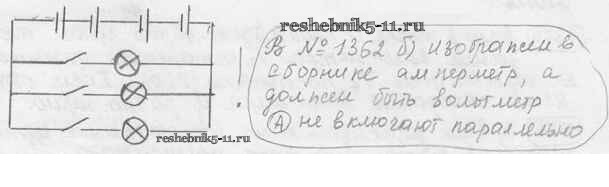 reshebnik5-11.ru
В № 1362 б) изображен в
сборнике амперметр, а
должен быть вольтметр
(А) не включают параллельно
reshebnik5-11.ru